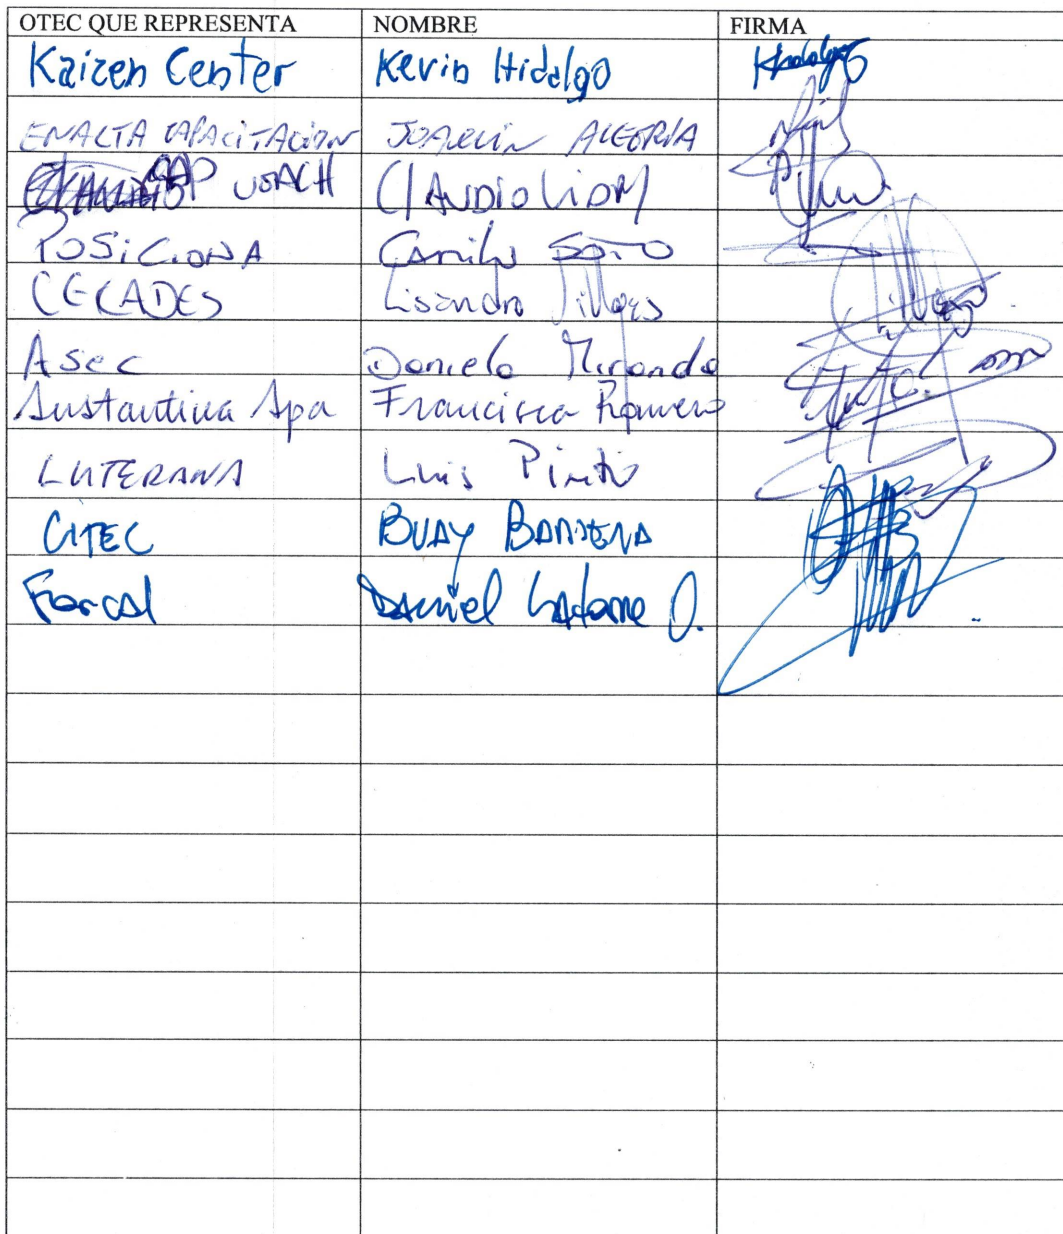 OTEC QUE REPRESENTA NOMBRE FIRMA
Kaizen Center Kevin Hidalgo
ENALTA CAPACITACIÓN JOAQUIN ALEGRIA
CAP USACH CLAUDIO
POSICIONA Camilo SOTO
CECADES Lisandro Villegas
Asec Daniela Miranda
Sustantiva Spa Francisca Romero
LUTERANA Luis Pinto
CITEC
Forcal Daniel Latorre O.